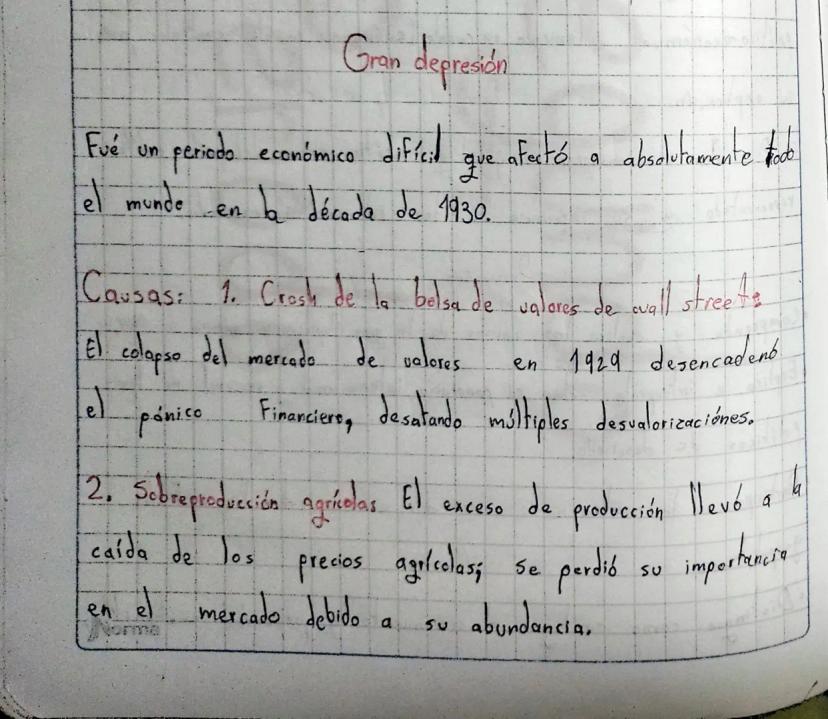 Gran depresión
Fué un periodo económico difícil que afectó a absolutamente todo
el mundo en la década de 1930.
Causas: 1. Crash de la bolsa de valores de wall street:
El colapso del mercado de valores en 1929 desencadenó
el pánico Financiero, desatando múltiples desvalorizaciónes.
2. Sobreproducción agrícola: El exceso de producción llevó a la
caída de los precios agrícolas; se perdió su importancia
en el mercado debido a su abundancia.
Norma